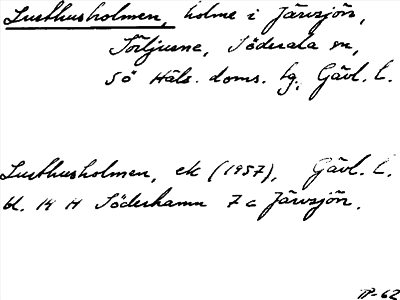 Lusthusholmen, holme i Järvsjön,
Söljusne, Söderala sn,
Sö Häls. doms. tg, Gävl. l.
Lusthusholmen, ek (1957), Gävl. l.
bl. 14 H Söderhamn 7 c Järvsjön.
-62